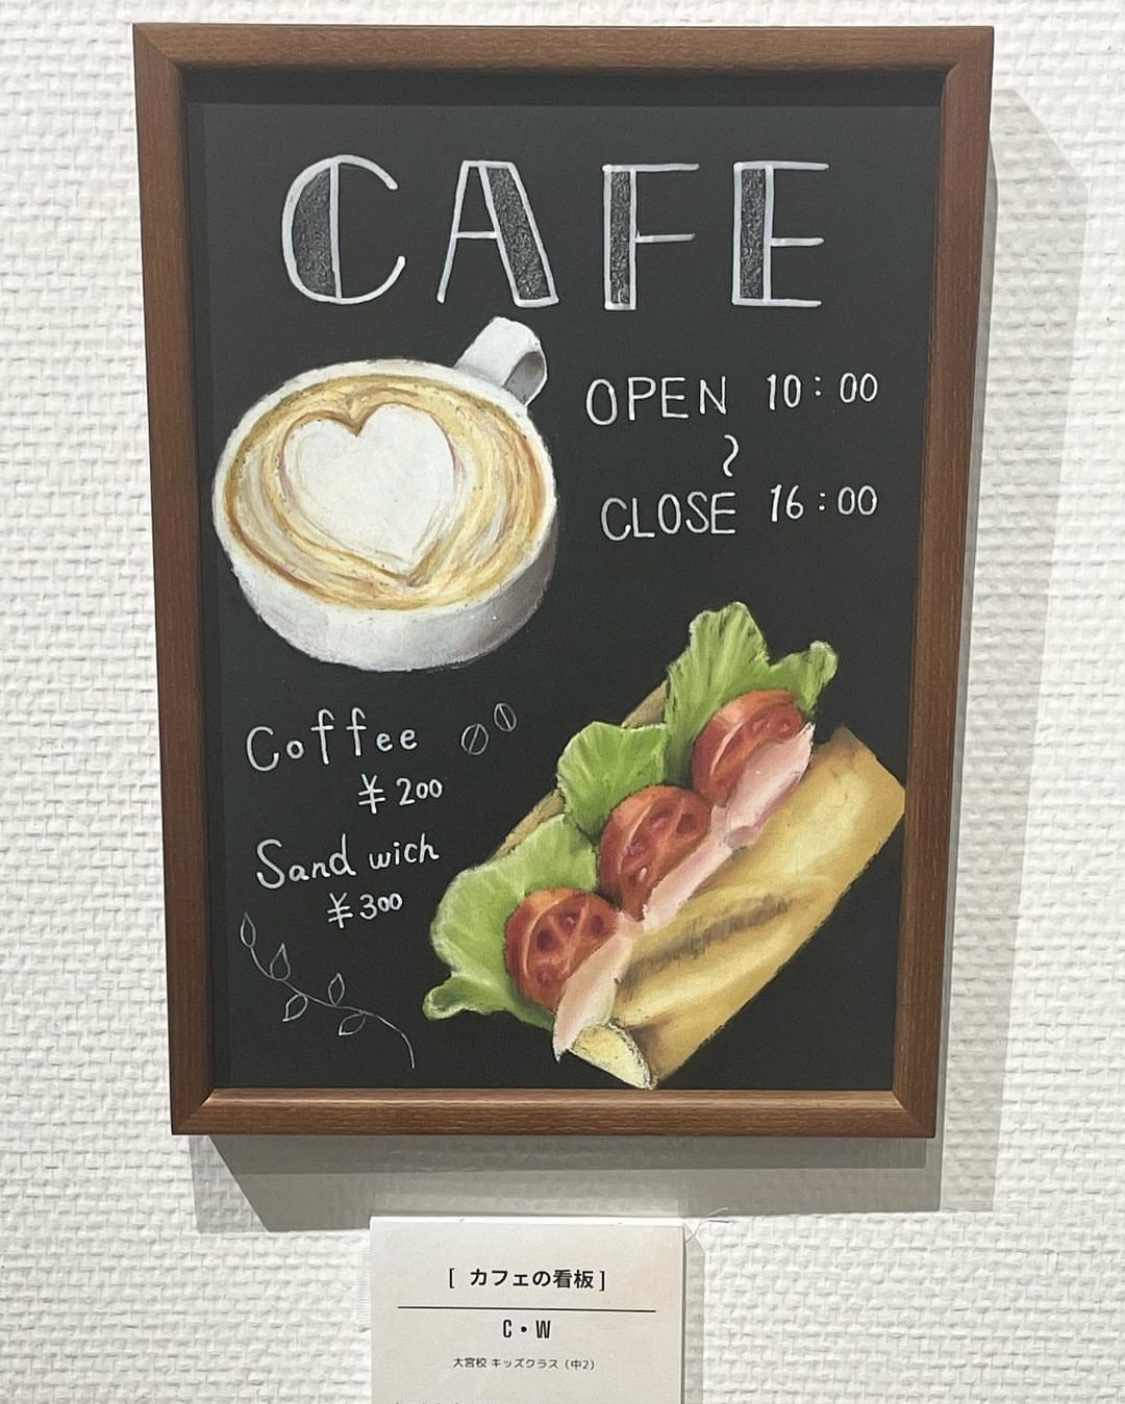 CAFE
OPEN 10:00
〜
CLOSE 16:00
Coffee
¥200
Sand wich
¥300
[ カフェの看板 ]
C・W
大宮校 キッズクラス（中2）